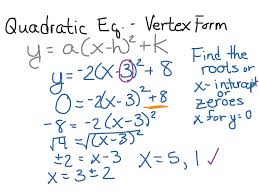 Quadratic Eq. - Vertex Form
y = a(x-h)² + k
y = -2(x-3)² + 8
0 = -2(x-3)² + 8
-8 = -2(x-3)²
√4 = √(x-3)²
±2 = x-3
x = 3 ± 2
x = 5, 1 ✓
Find the
roots or
x-intercept
or
zeroes
x for y=0